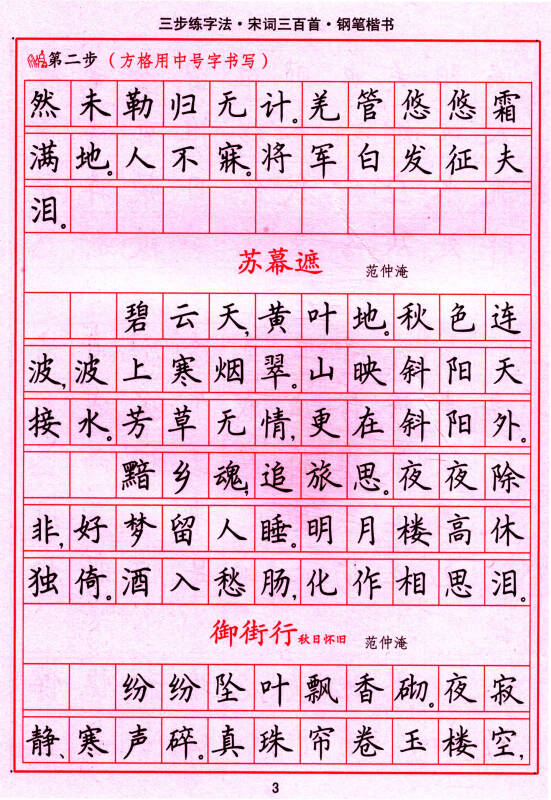 三步练字法·宋词三百首·钢笔楷书
第二步（方格用中号字书写）
然未勒归无计。羌管悠悠霜
满地。人不寐。将军白发征夫
泪。
苏幕遮 范仲淹
碧云天,黄叶地。秋色连
波,波上寒烟翠。山映斜阳天
接水。芳草无情,更在斜阳外。
黯乡魂,追旅思。夜夜除
非,好梦留人睡。明月楼高休
独倚。酒入愁肠,化作相思泪。
御街行 秋日怀旧 范仲淹
纷纷坠叶飘香砌。夜寂
静、寒声碎。真珠帘卷玉楼空,
3